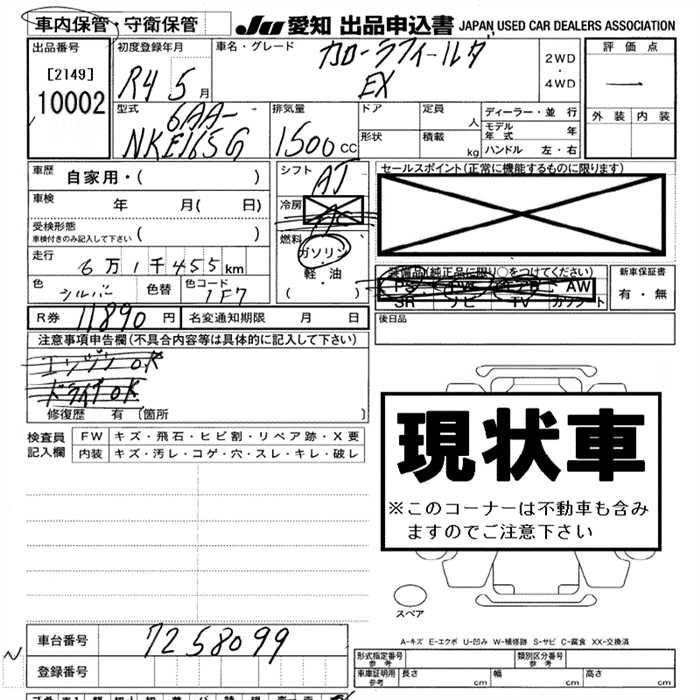 車内保管・守衛保管 JU 愛知 出品申込書 JAPAN USED CAR DEALERS ASSOCIATION
出品番号 初度登録年月 車名・グレード 評価点
[2149] R4 5月 カローラフィールダ 2WD
・
10002 EX 4WD 一
型式 排気量 ドア 定員 人 ディーラー・並 行 外装 内装
6AA-
NKE165G 1500cc 形状 積載 kg モデル年式 年
ハンドル 左・右
車歴 自家用・( ) シフト AT セールスポイント(正常に機能するものに限ります)
車検 年 月( 日) 冷房
受検形態
車検付きのみ記入して下さい ( ) 燃料
ガソリン
走行 6万1千455km 軽・油 装備品(純正品に限り○をつけてください) 新車保証書
色 シルバー 色替 色コード 1F7 ( ) PS AW
SR ナビ TV カワシート 有・無
R券 11890円 名変通知期限 月 日 後日品
注意事項申告欄(不具合内容等は具体的に記入して下さい)
エンジンOK
ドライブOK
修復歴 有 (箇所 )
検査員
記入欄
FW キズ・飛石・ヒビ割・リペア跡・X要
内装 キズ・汚レ・コゲ・穴・スレ・キレ・破レ
現状車
※このコーナーは不動車も含み
ますのでご注意下さい
スペア
A-キズ E-エクボ U-凹み W-補修跡 S-サビ C-腐食 XX-交換済
車台番号 7258099
登録番号
形式指定番号
参考
類別区分番号
参考
車庫証明用
参考
長さ cm 幅 cm 高さ cm